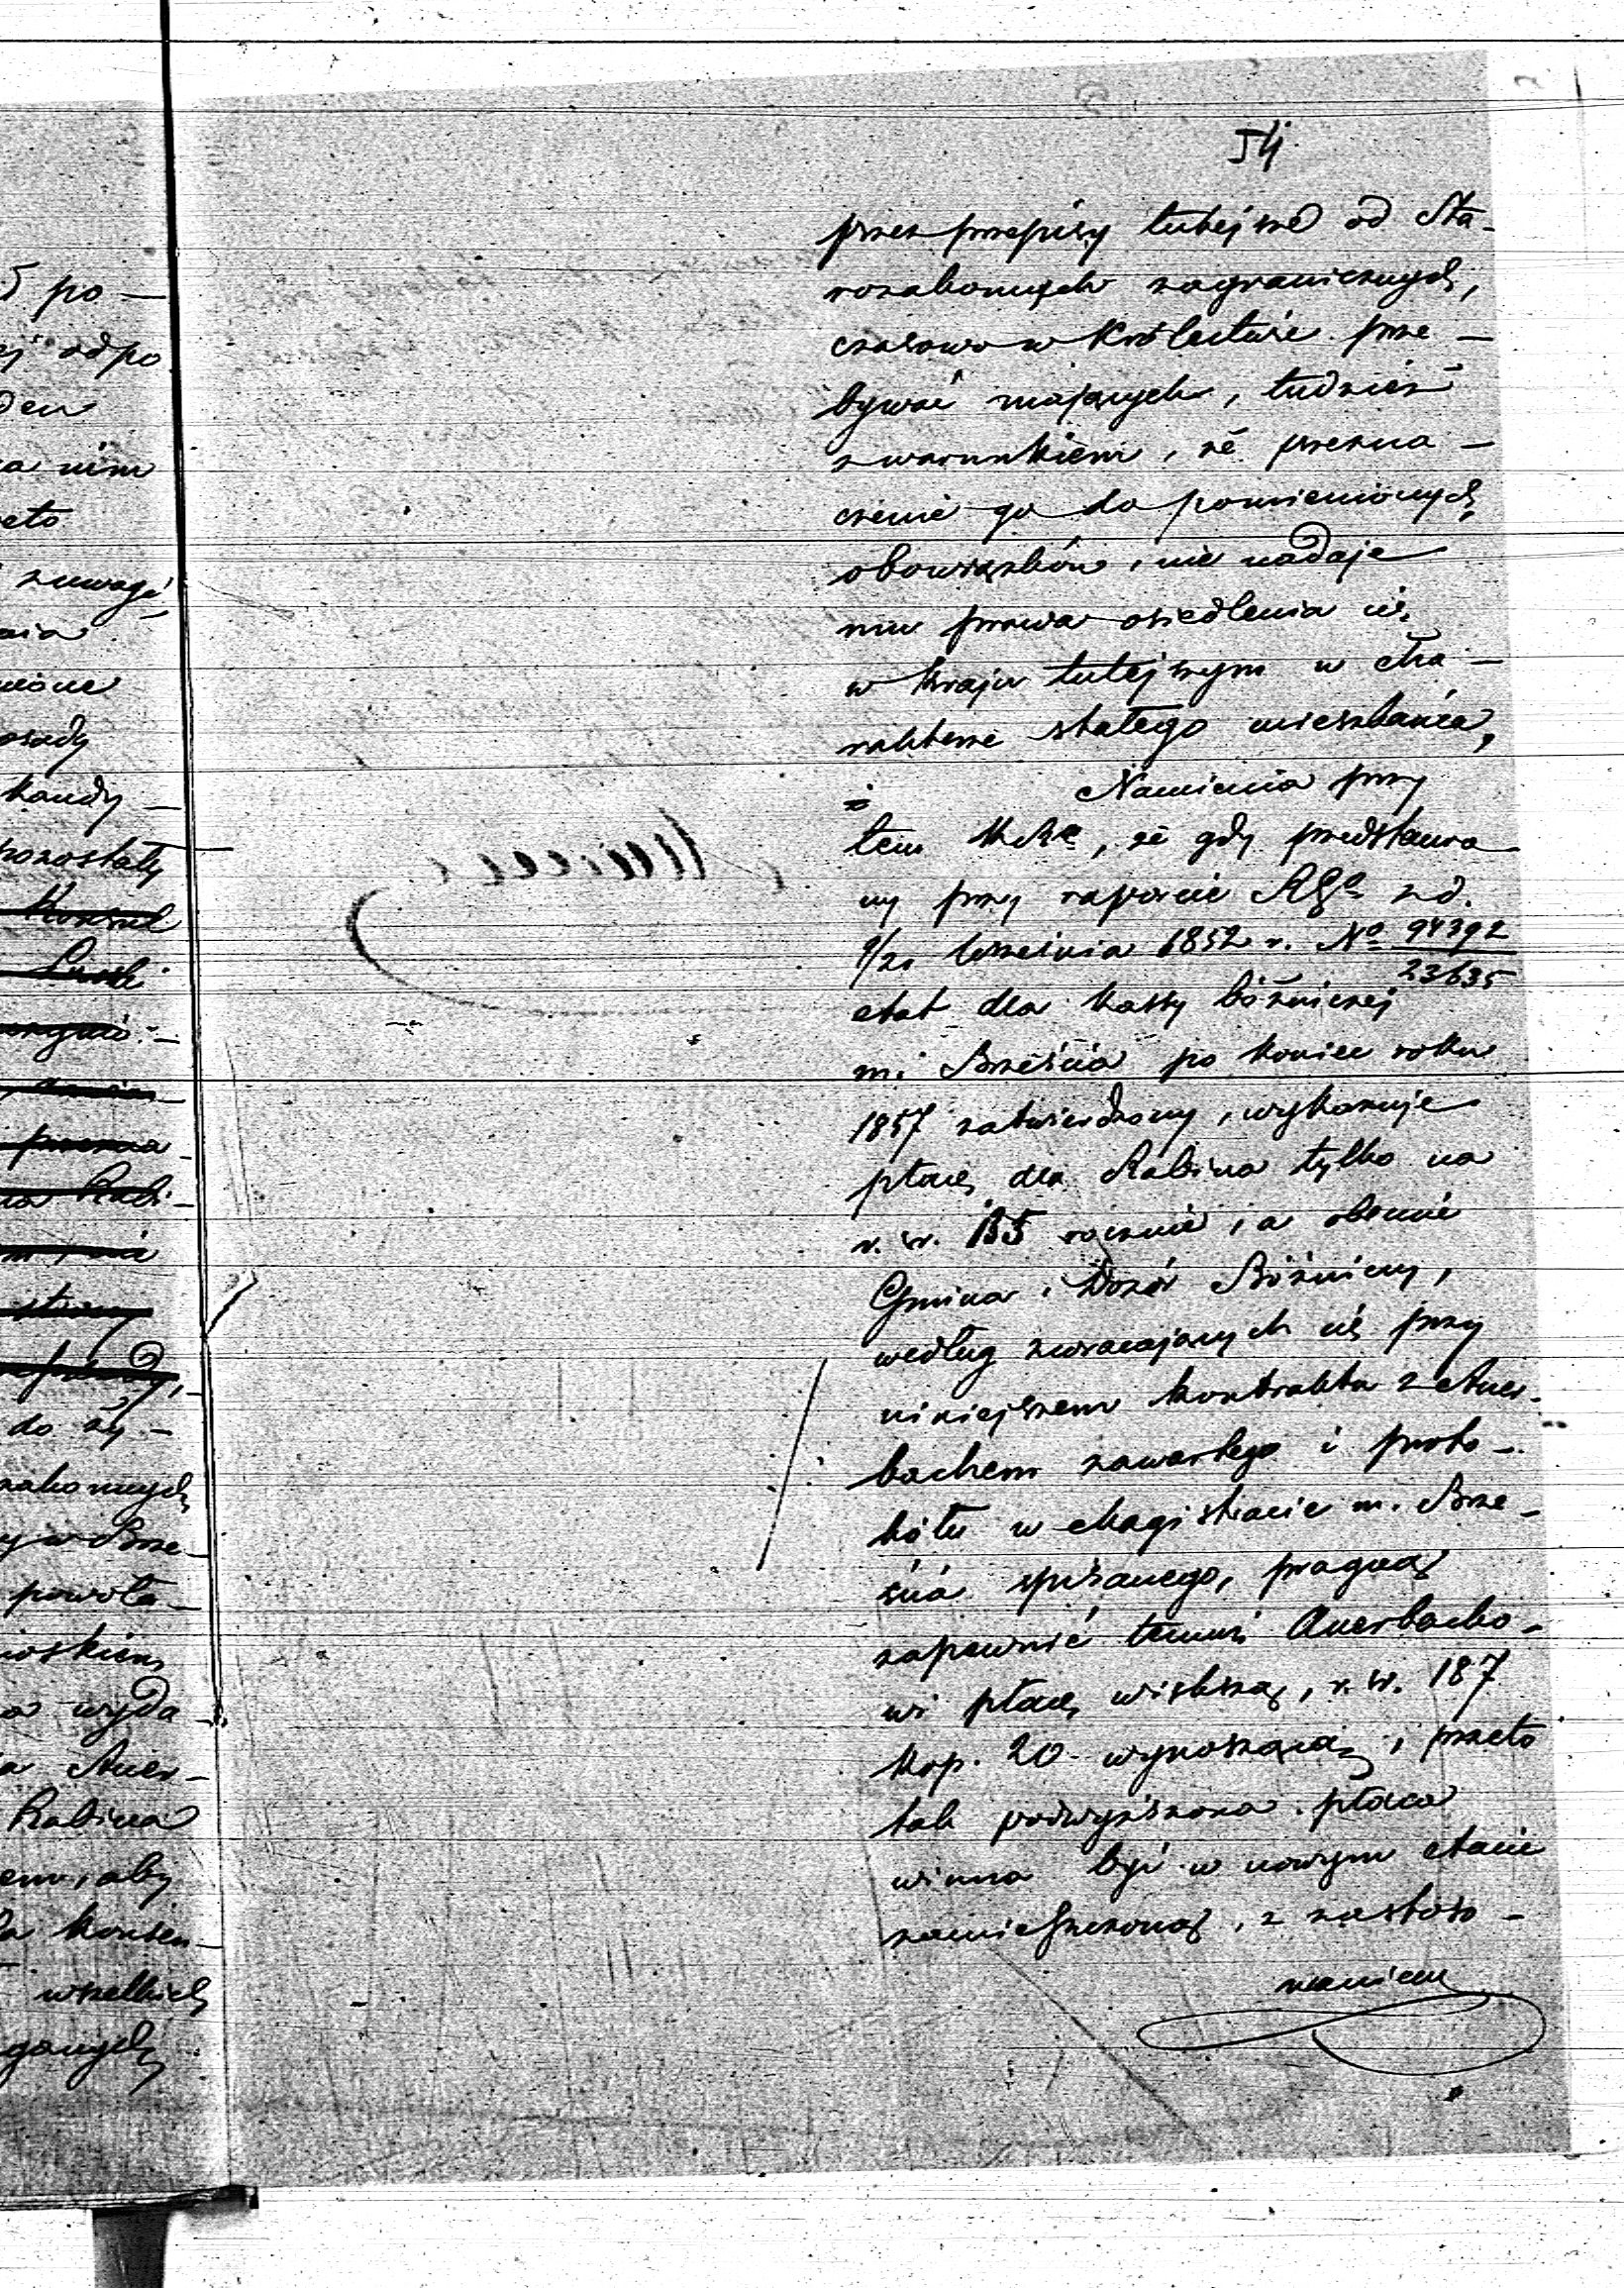 54.
przez przepisy tutejsze od Sta-
rozakonnych zagranicznych,
czasowo w Królestwie prze-
bywać mających, tudzież
z warunkiem, że przezna-
czenie go do pomienionych
obowiązków, nie nadaje
mu prawa osiedlenia się
w kraju tutejszym w cha-
rakterze stałego mieszkańca,
Namienia przy
tem, że gdy przedstawio-
ny przy raporcie z d.
9/21 Września 1852 r. No 94392/23635
etat dla kassy bóżniczej
m. Brześcia po koniec roku
1857 zatwierdzony, wykazuje
płacę dla Rabina tylko na
r. sr. 135 rocznie, a obecnie
Gmina i Dozór Bóżniczy,
według zwracających się przy
niniejszem kontraktu z Auer-
bachem zawartego i proto-
kółu w Magistracie m. Brze-
ścia spisanego, pragną
zapewnić temuż Auerbacho-
wi płacę większą, r. sr. 187
kop. 20 wynoszącą, przeto
tak podwyższona płaca
winna być w nowym etacie
zamieszczoną, z zastoso-
waniem
po-
odpo
den
nim
zuwagi
osady
kandy-
pozostały
do ży-
zakonnych
w Brze-
powoła-
wyda-
Auer-
Rabina
aby
konsen-
wszelkich